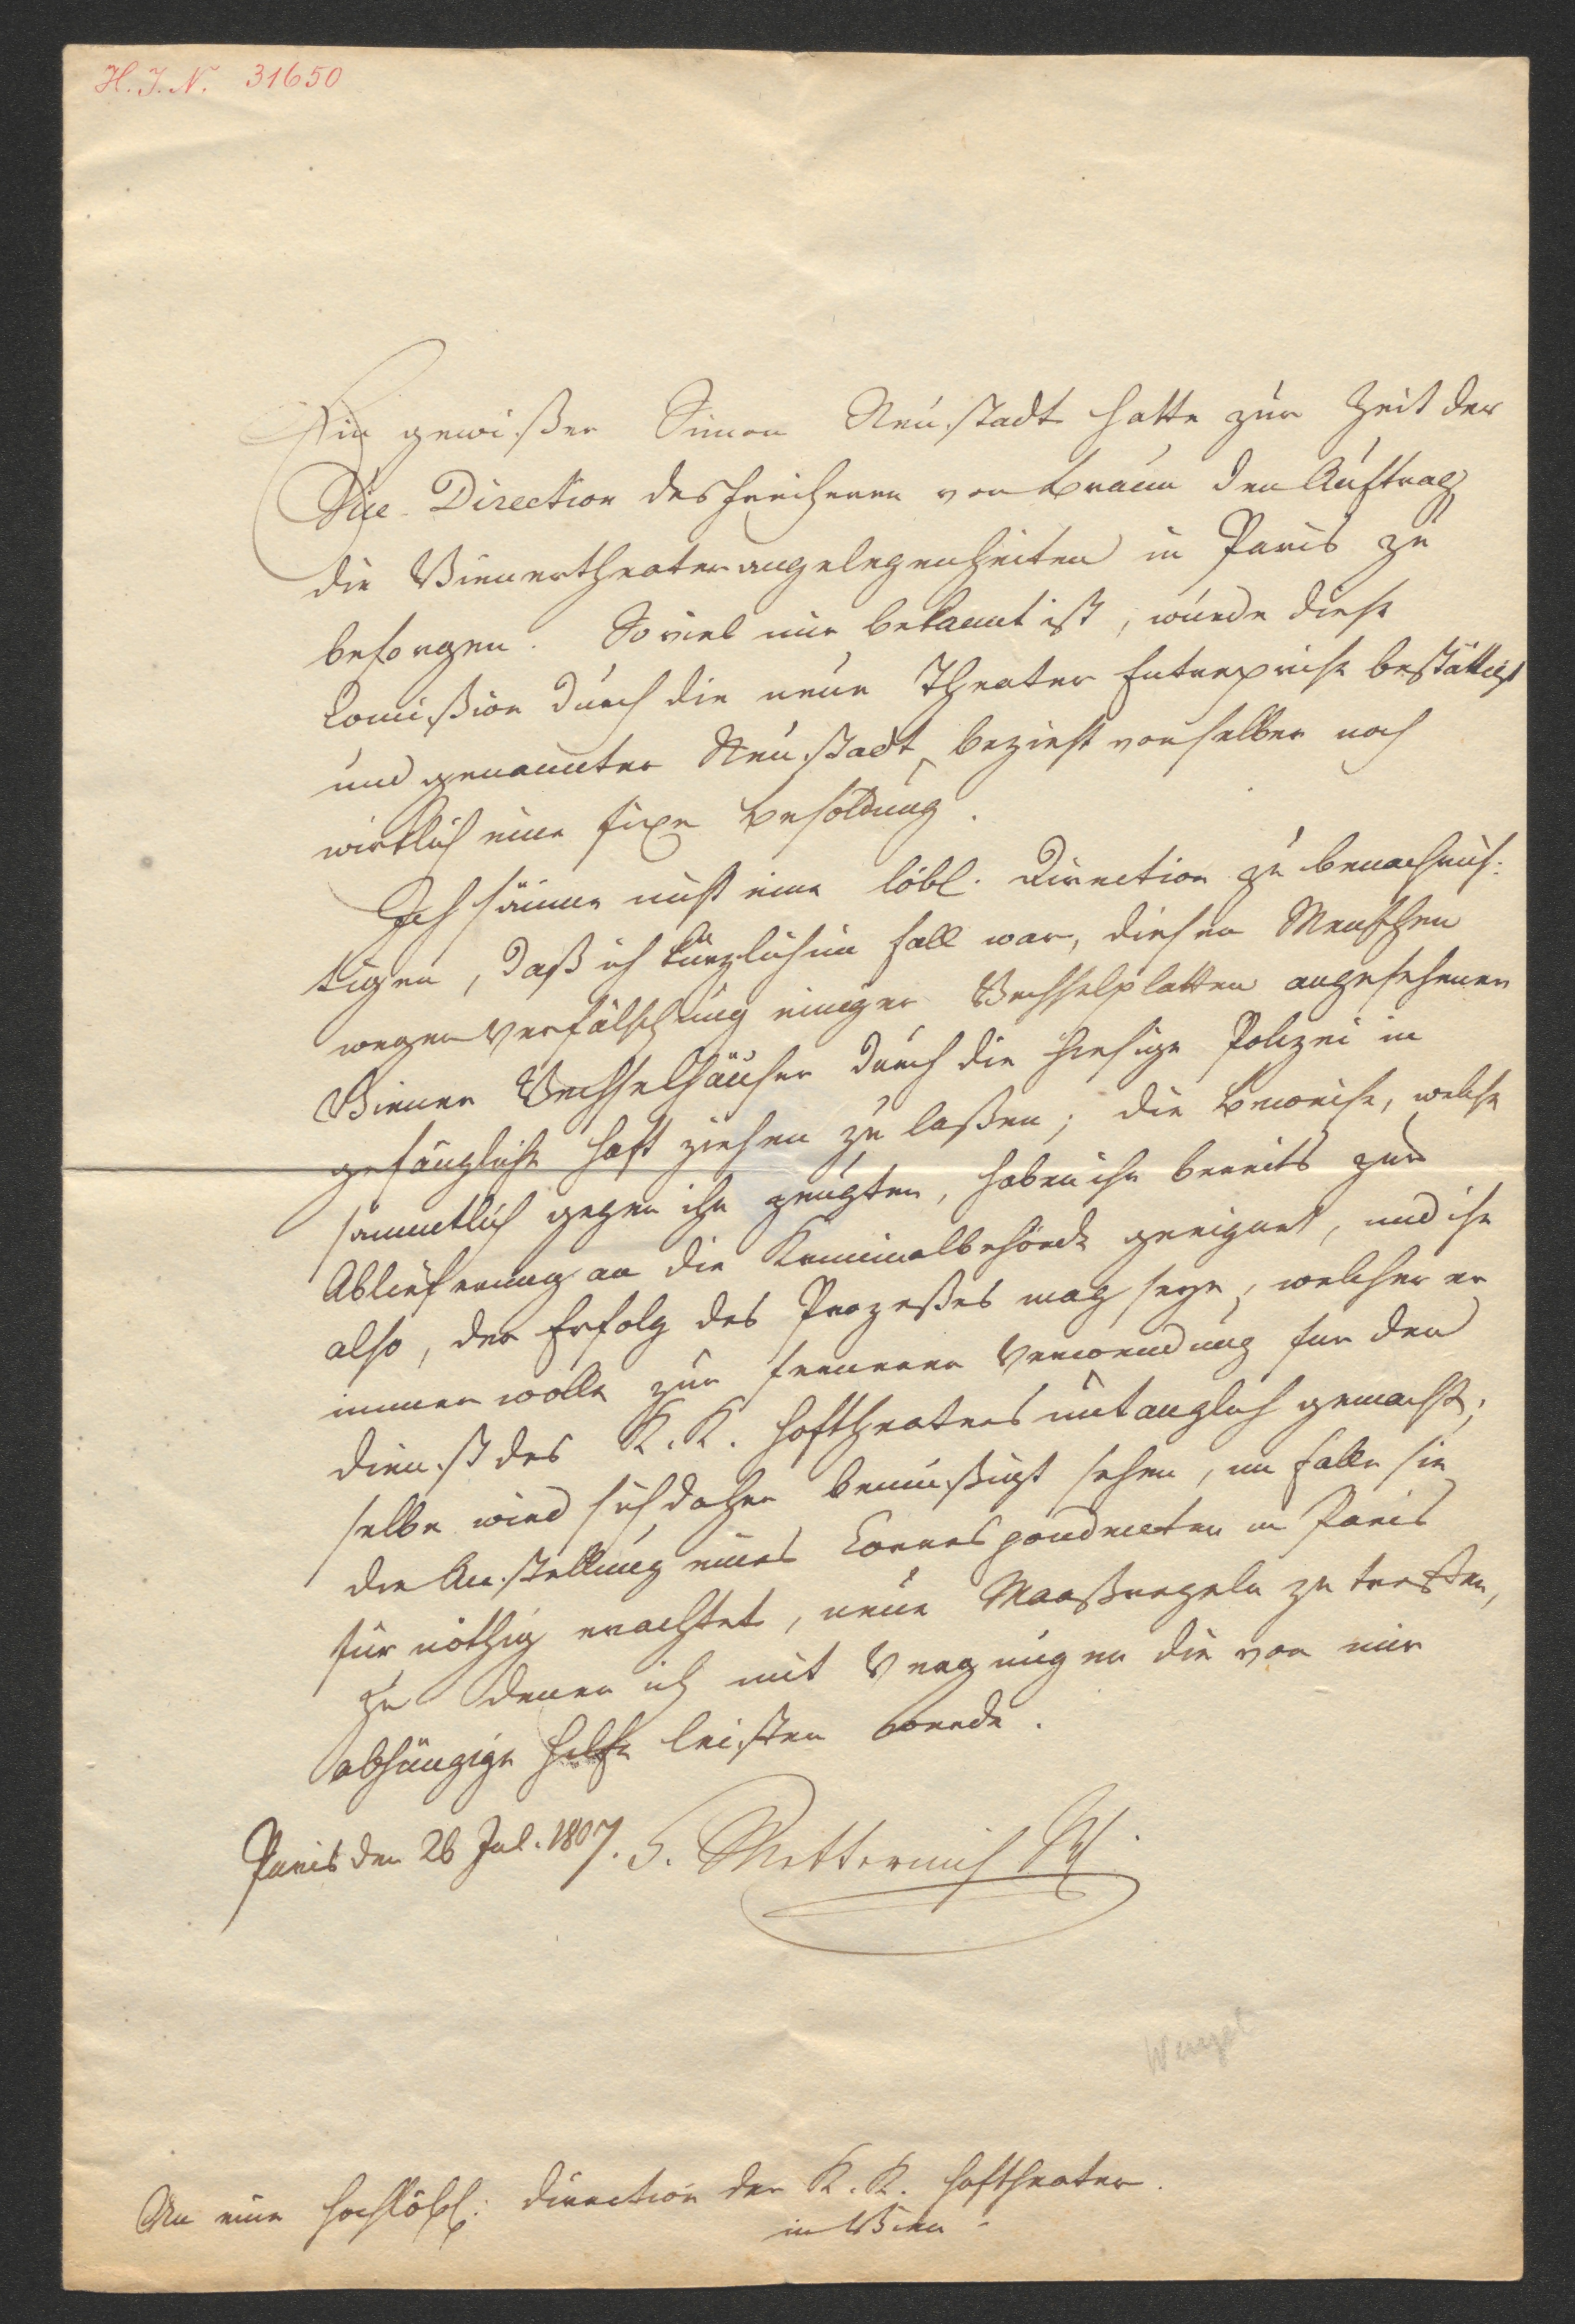 H. I. N. 31650
Ein gewißer Simon Neustadt hatte zur Zeit der
Vice-Direction des Freiherrn von Braun den Auftrag
die Wienertheaterangelegenheiten in Paris zu
besorgen. So viel mir bekannt ist, wurde diese
Comißion durch die neue Theater Entreprise bestättigt
und genannter Neustadt bezieht von selber noch
wirklich eine fixe Besoldung.
Ich säume nicht eine löbl. Direction zu benachrich:
tigen, daß ich kürzlich im Fall war, diesen Menschen
wegen Verfälschung einiger Wechselplatten angesehener
Wiener Wechselhäuser durch die hiesige Polizei in
gefängliche Haft ziehen zu laßen; die Beweise, welche
sämmtlich gegen ihn zeugten, haben ihn bereits zur
Ablieferung an die Kriminalbehörde geeignet, und ihn
also, der Erfolg des Prozeßes mag seyn, welcher er
immer wolle zur ferneren Verwendung für den
Dienst des K. K. Hoftheaters untauglich gemacht;
selbe wird sich daher bemüßigt sehen, im Falle sie
die Anstellung eines Correspondenten in Paris
für nöthig erachtet, neue Maaßregeln zu treffen,
zu denen ich mit Vergnügen die von mir
abhängige Hilfe leisten werde.
Paris den 26 Jul. 1807. Metternich
Wenzel
An eine hochlöbl: Direction der K. K. Hoftheater.
in Wien